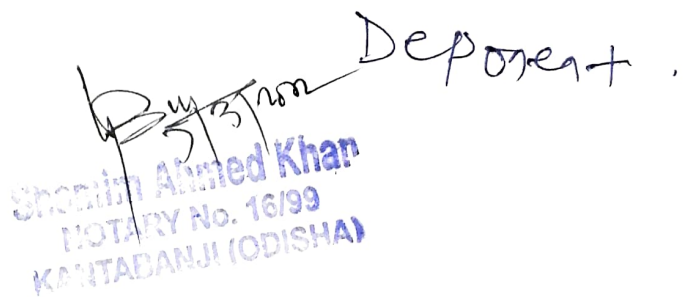 Deponent.
Shamim Ahmed Khan
NOTARY No. 16/99
KANTABANJI (ODISHA)